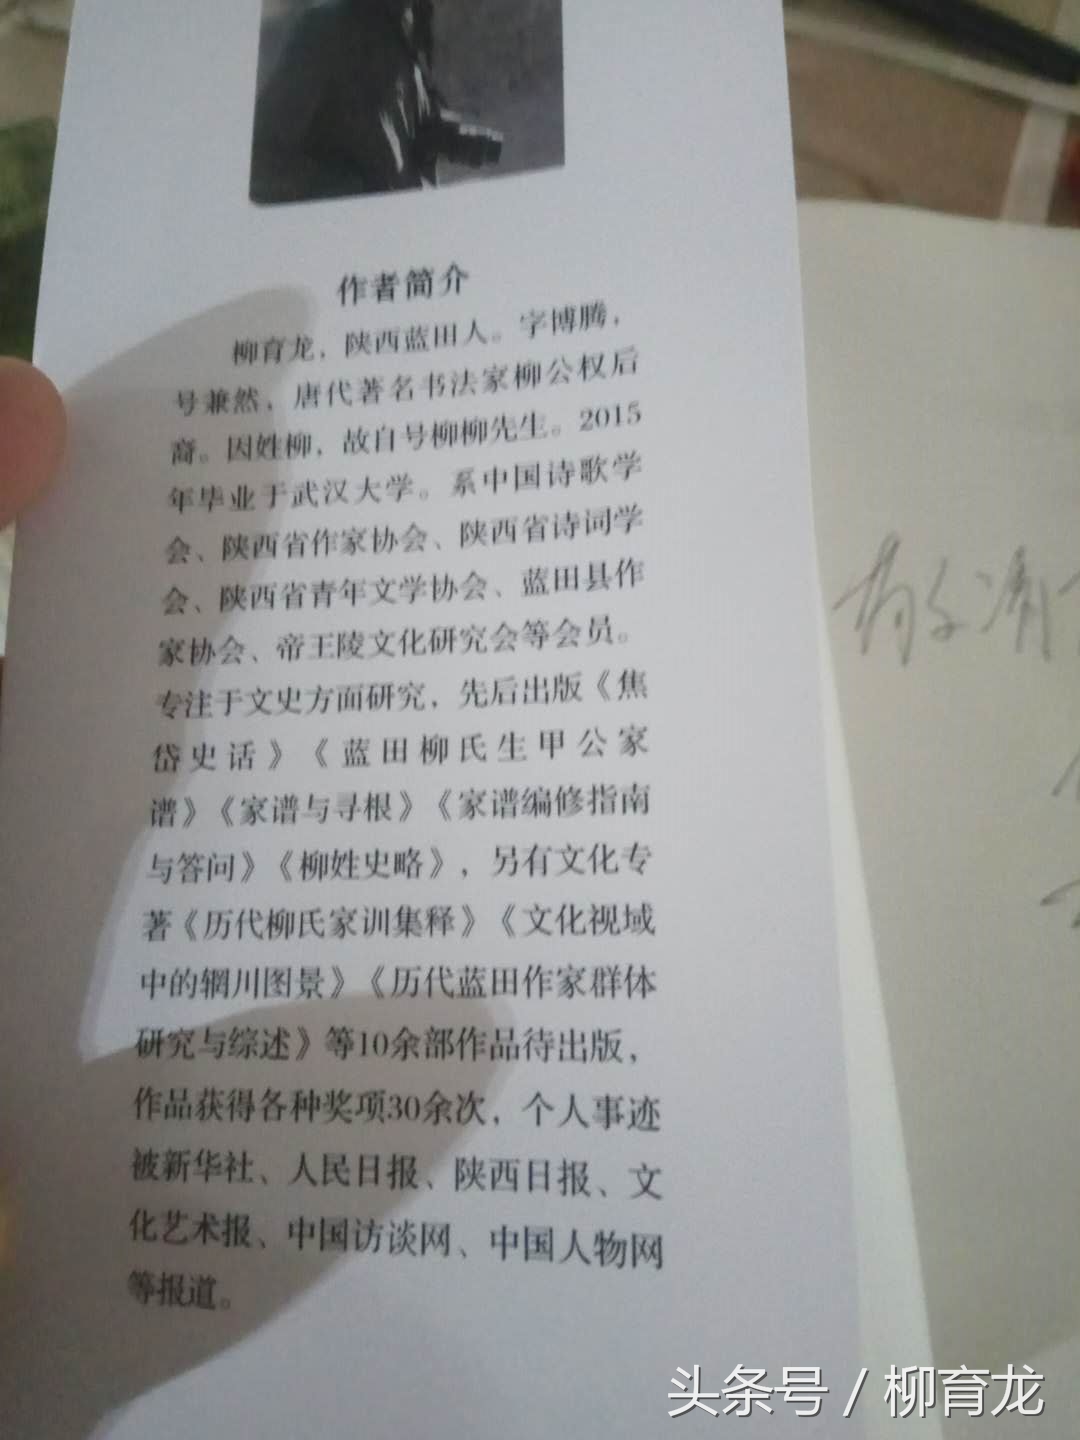 作者简介
柳育龙，陕西蓝田人。字博腾，
号兼然，唐代著名书法家柳公权后
裔。因姓柳，故自号柳柳先生。2015
年毕业于武汉大学。系中国诗歌学
会、陕西省作家协会、陕西省诗词学
会、陕西省青年文学协会、蓝田县作
家协会、帝王陵文化研究会等会员。
专注于文史方面研究，先后出版《焦
岱史话》《蓝田柳氏生甲公家
谱》《家谱与寻根》《家谱编修指南
与答问》《柳姓史略》，另有文化专
著《历代柳氏家训集释》《文化视域
中的辋川图景》《历代蓝田作家群体
研究与综述》等10余部作品待出版，
作品获得各种奖项30余次，个人事迹
被新华社、人民日报、陕西日报、文
化艺术报、中国访谈网、中国人物网
等报道。
头条号 / 柳育龙